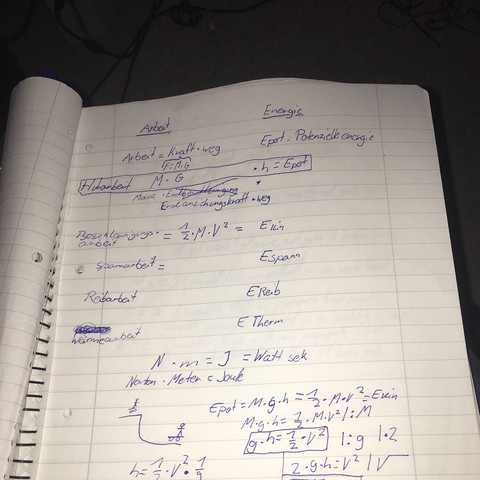 Arbeit Energie
Arbeit = Kraft · weg Epot = Potenzielle energie
F = M·G
Hubarbeit M · G · h = Epot
Masse · Erdbeschleunigung
Erdanziehungskraft · weg
Beschleunigungs-
arbeit = 1/2 · M · V² = Ekin
Spannarbeit = ESpann
Reibarbeit EReib
Wärmearbeit E Therm
N · m = J = Watt sek
Newton · Meter = Joule
Epot = M·g·h = 1/2 · M · V² = Ekin
M·g·h = 1/2 · M · V² | : M
g·h = 1/2 · V² | : g | · 2
h = 1/2 · V² · 1/g 2·g·h = V² | √